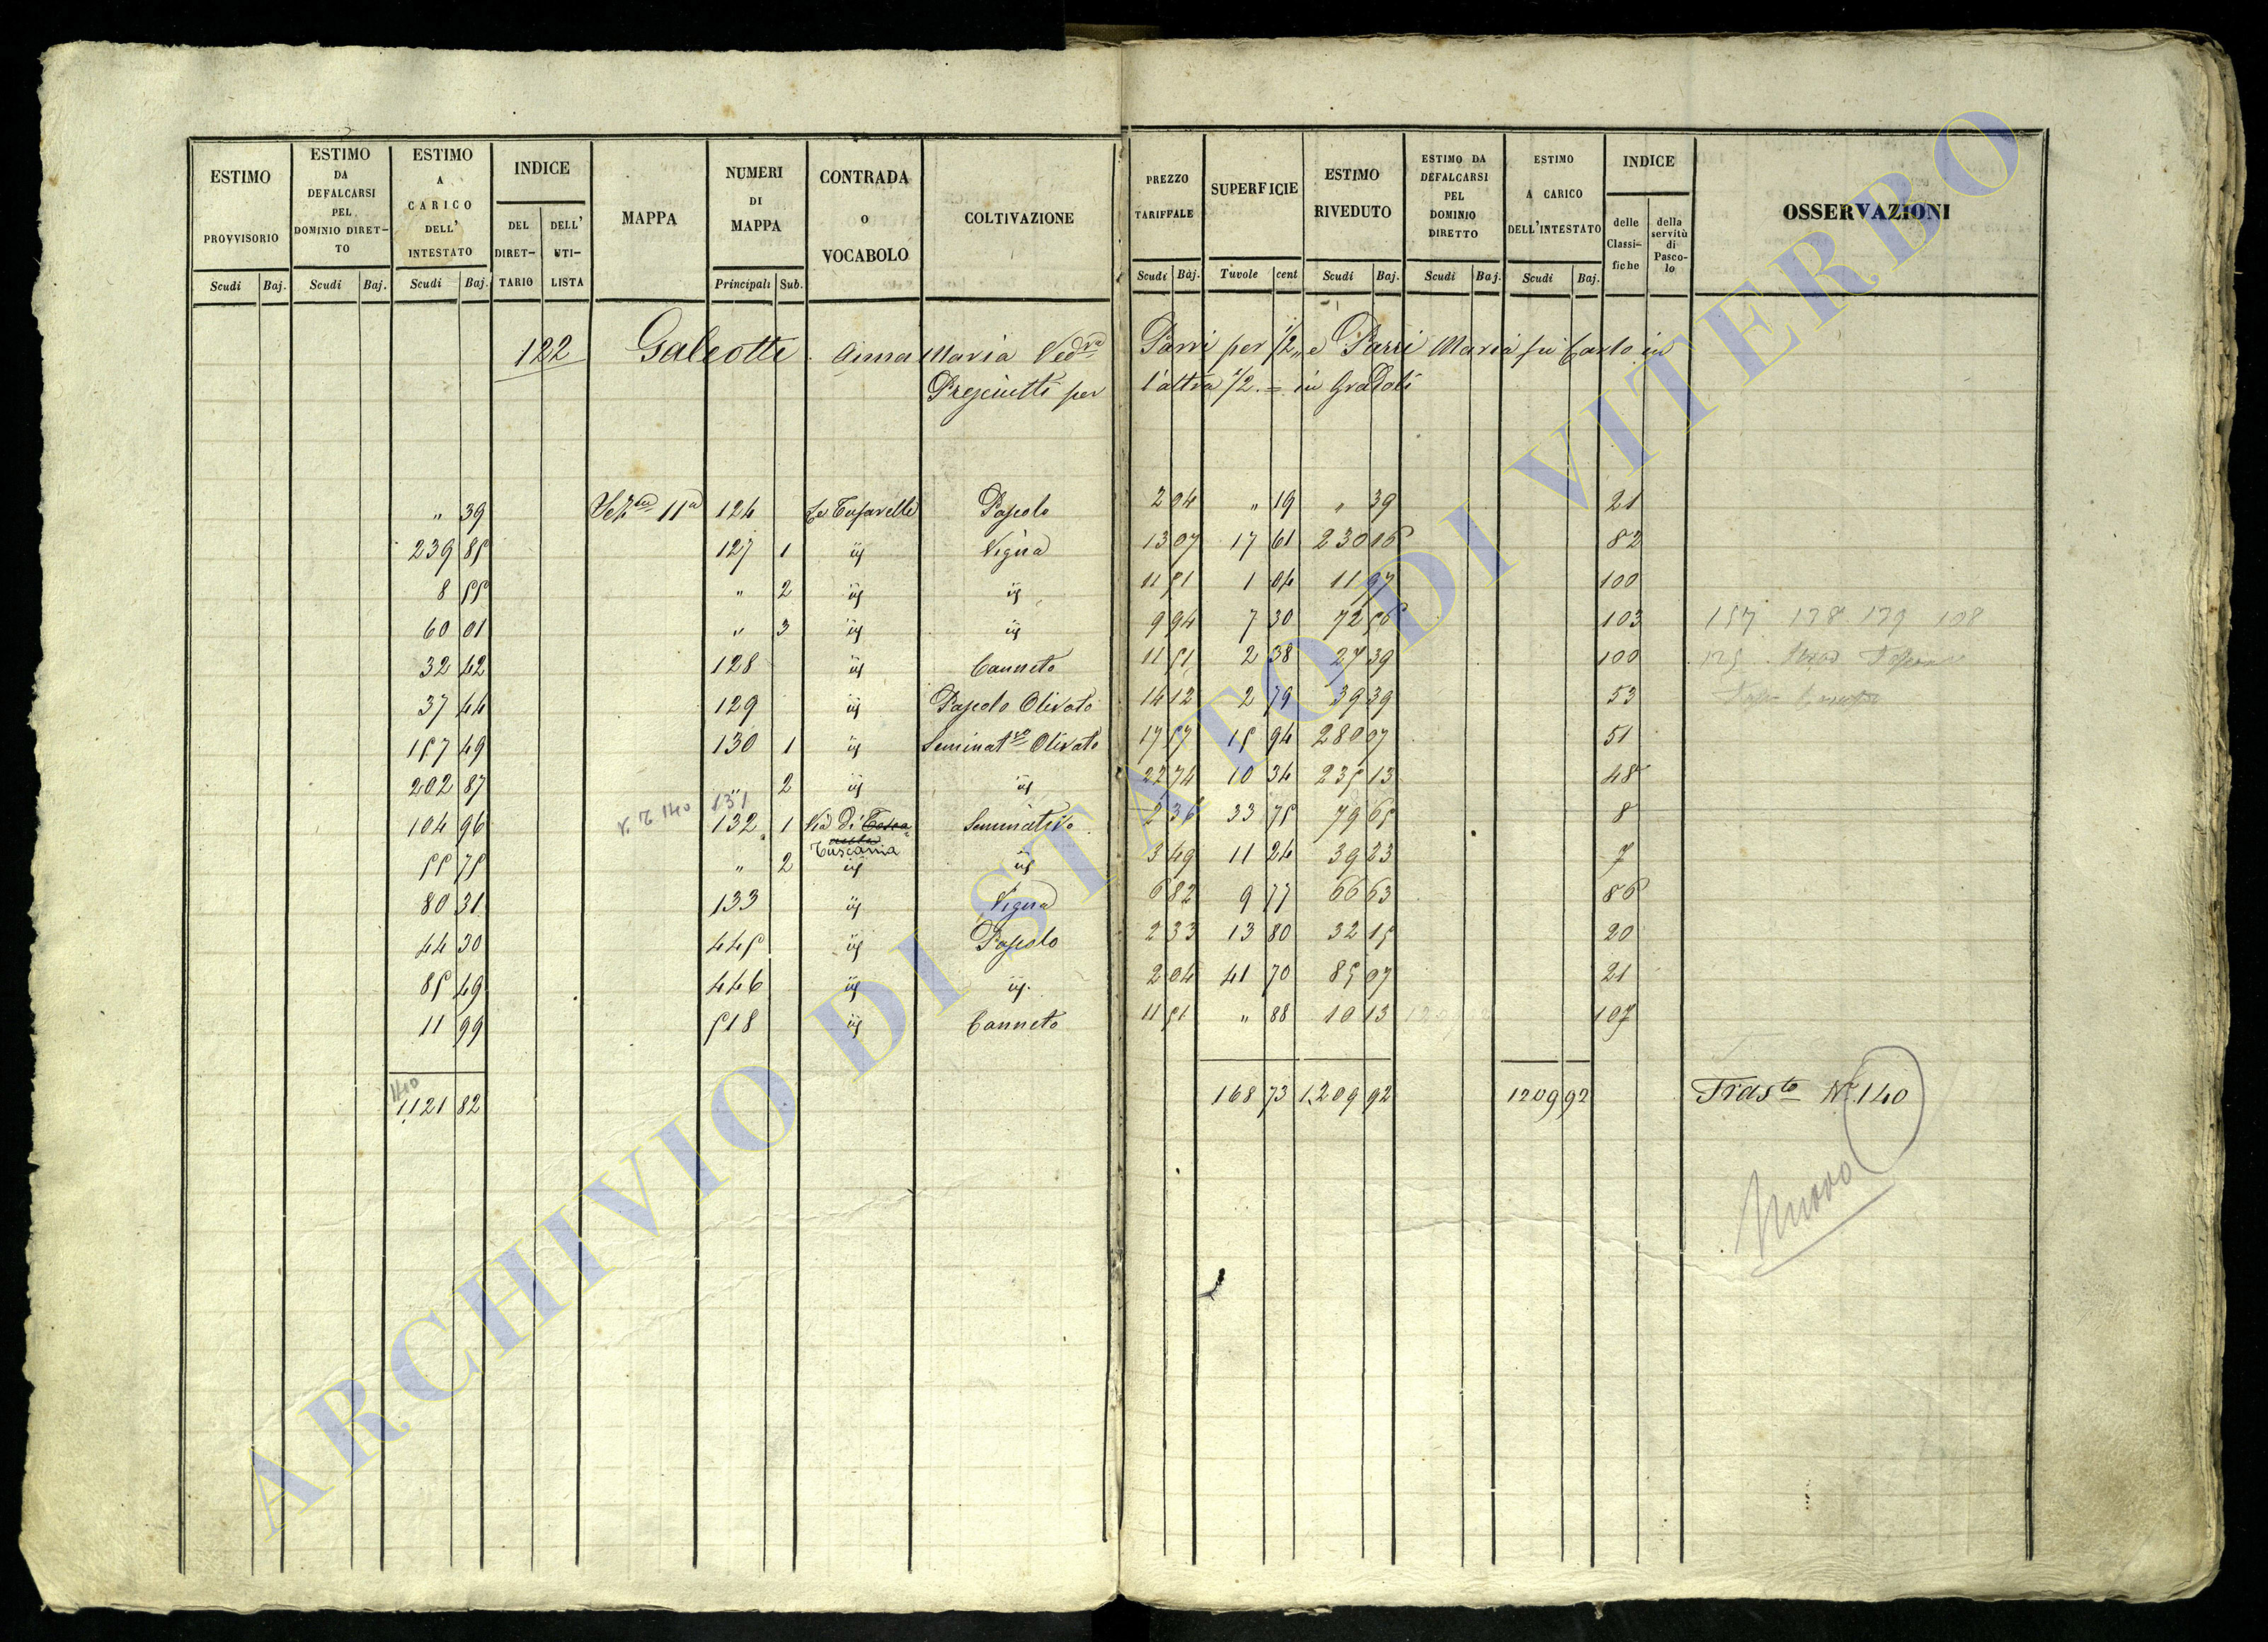 ESTIMO PROVVISORIO
ESTIMO DA DEFALCARSI PEL DOMINIO DIRETTO
ESTIMO A CARICO DELL' INTESTATO
INDICE
DEL DIRETTARIO
DELL' UTILISTA
MAPPA
NUMERI DI MAPPA
CONTRADA O VOCABOLO
COLTIVAZIONE
PREZZO TARIFFALE
SUPERFICIE
ESTIMO RIVEDUTO
ESTIMO DA DEFALCARSI PEL DOMINIO DIRETTO
ESTIMO A CARICO DELL'INTESTATO
INDICE
delle Classifiche
della servitù di Pascolo
OSSERVAZIONI
Scudi Baj. Scudi Baj. Scudi Baj. Principali Sub. Scudi Baj. Tavole cent Scudi Baj. Scudi Baj. Scudi Baj.
122 Galeotti Anna Maria Ved.va Parri per 1/2 e Parri Maria fu Carlo in
Presciutti per l'altra 1/2 = in Gradoli
" 39 Sez.ne 11a 124 Le Tufarelle Pascolo 2 04 " 19 " 39 21
239 85 127 1 id Vigna 13 07 17 61 230 16 82
8 55 " 2 id id 11 51 1 04 11 97 100
60 01 " 3 id id 9 94 7 30 72 56 103 157 138 139 108
32 42 128 id Canneto 11 51 2 38 27 39 100
37 44 129 id Pascolo Olivato 14 12 2 79 39 39 53
157 49 130 1 id Seminat.vo Olivato 17 57 15 94 280 07 51
202 87 " 2 id id 22 74 10 34 235 13 48
140 131
104 96 132 1 Via di Toscanella Tuscania Seminativo 2 36 33 75 79 65 8
55 75 " 2 id id 3 49 11 24 39 23 7
80 31 133 id Vigna 6 82 9 77 66 63 86
44 30 445 id Pascolo 2 33 13 80 32 15 20
85 49 446 id id 2 04 41 70 85 07 21
11 99 518 id Canneto 11 51 " 88 10 13 107
140
1121 82 168 73 1209 92 1209 92 Tras.to N.140
Nuovo
ARCHIVIO DI STATO DI VITERBO